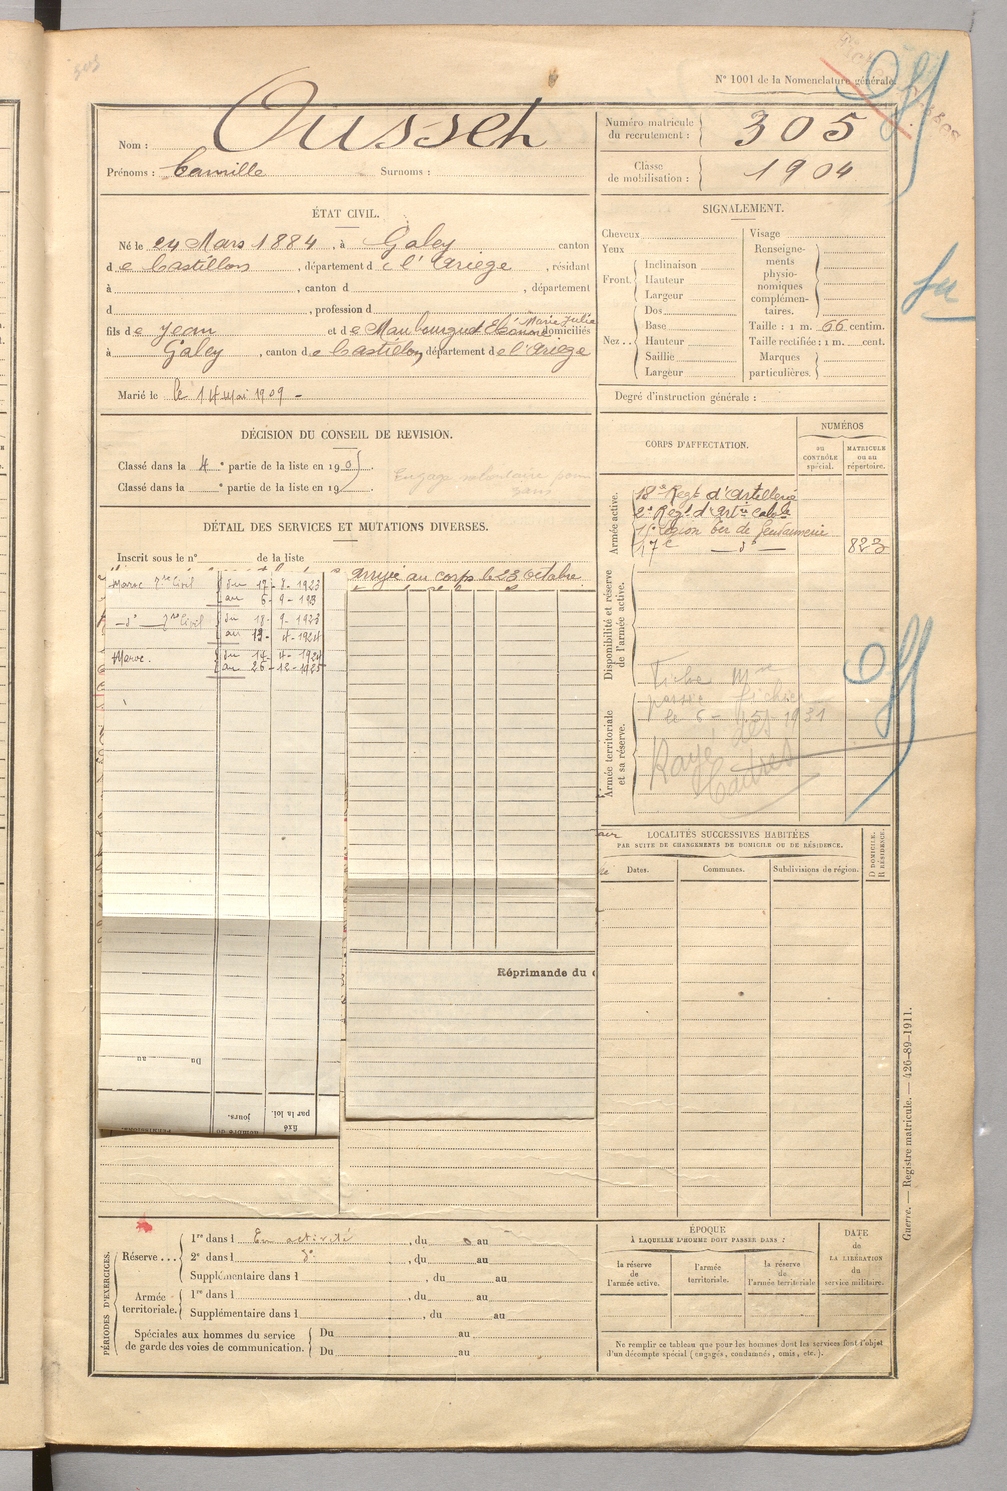 305
N° 1001 de la Nomenclature générale.
Nom : Ousset
Prénoms : Camille Surnoms :
Numéro matricule du recrutement : 305
Classe de mobilisation : 1904
ÉTAT CIVIL.
Né le 24 Mars 1884, à Galey canton
de Castillon, département de l'Ariège, résidant
à , canton d , département
d , profession d
fils de Jean et de Maubourguet Eléonore Marie Julie domiciliés
à Galey, canton de Castillon, département de l'Ariège
Marié le 14 mai 1909 -
SIGNALEMENT.
Cheveux
Yeux
Front. Inclinaison
Hauteur
Largeur
Nez.. Dos
Base
Hauteur
Saillie
Largeur
Visage
Renseignements physionomiques complémentaires.
Taille : 1 m. 66 centim.
Taille rectifiée : 1 m. cent.
Marques particulières.
Degré d'instruction générale :
DÉCISION DU CONSEIL DE REVISION.
Classé dans la 4e partie de la liste en 1905.
Classé dans la e partie de la liste en 19 .
Engagé volontaire pour
ans
DÉTAIL DES SERVICES ET MUTATIONS DIVERSES.
Inscrit sous le n° de la liste
arrivé au corps le 23 Octobre
Maroc du 17- 8- 1923
au 5- 9- 193
-d°- du 18- 9- 1923
au 13- 4- 1924
Maroc. du 14- 4- 1924
au 26-12-1925
Réprimande du
Du au
fixé par la loi.
jours.
CORPS D'AFFECTATION.
NUMÉROS
au CONTRÔLE spécial.
MATRICULE ou au répertoire.
Armée active.
18e Regt d'Artillerie
2e Regt d'Artie Colale
17e Légion ter de Gendarmerie
17e -d°- 823
Disponibilité et réserve de l'armée active.
Armée territoriale et sa réserve.
Fiche Mle
passée fichier
le 5- 1931
Rayé des
Cadres
LOCALITÉS SUCCESSIVES HABITÉES
PAR SUITE DE CHANGEMENTS DE DOMICILE OU DE RÉSIDENCE.
Dates. Communes. Subdivisions de région.
D DOMICILE.
R RÉSIDENCE.
PÉRIODES D'EXERCICES.
Réserve... 1re dans l En activité, du au
2e dans l d°, du au
Supplémentaire dans l , du au
Armée territoriale. 1re dans l , du au
Supplémentaire dans l , du au
Spéciales aux hommes du service de garde des voies de communication. Du au
Du au
ÉPOQUE
À LAQUELLE L'HOMME DOIT PASSER DANS :
la réserve de l'armée active.
l'armée territoriale.
la réserve de l'armée territoriale
DATE de LA LIBÉRATION du service militaire.
Ne remplir ce tableau que pour les hommes dont les services font l'objet
d'un décompte spécial (engagés, condamnés, omis, etc.).
Guerre. — Registre matricule. — 426-89-1911.